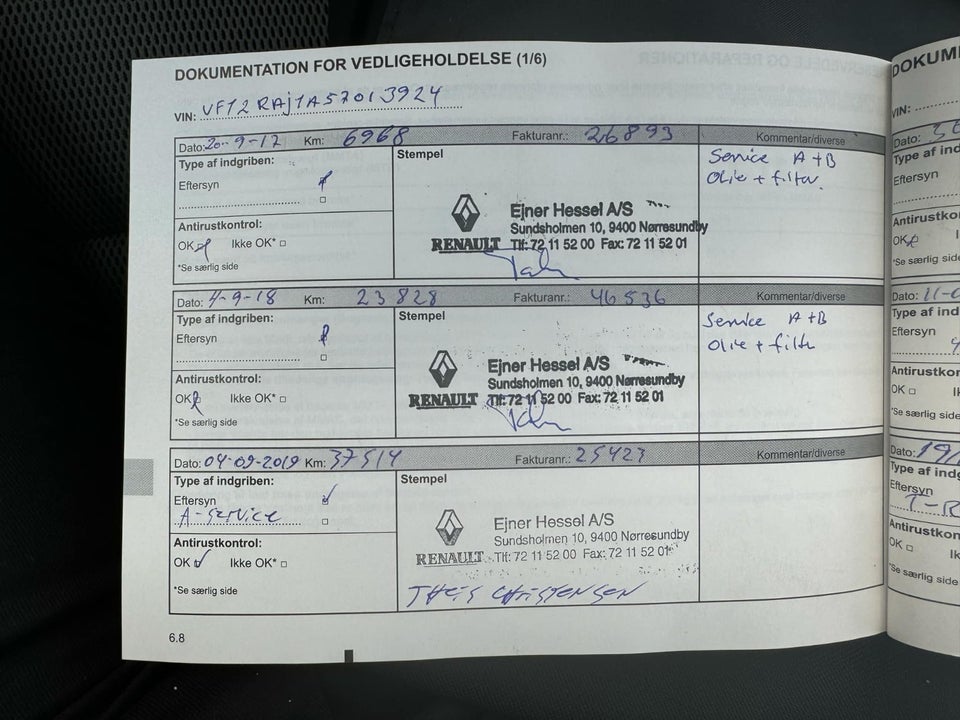 DOKUMENTATION FOR VEDLIGEHOLDELSE (1/6)
VIN: VF12RAJ1A57013924
Dato: 20-9-17 Km: 6968 Fakturanr.: 26893 Kommentar/diverse
Type af indgriben:
Eftersyn
Antirustkontrol:
OK Ikke OK*
*Se særlig side
Stempel
RENAULT
Ejner Hessel A/S
Sundsholmen 10, 9400 Nørresundby
Tlf: 72 11 52 00 Fax: 72 11 52 01
Service A+B
Olie + filter.
Dato: 4-9-18 Km: 23828 Fakturanr.: 46536 Kommentar/diverse
Type af indgriben:
Eftersyn
Antirustkontrol:
OK Ikke OK*
*Se særlig side
Stempel
RENAULT
Ejner Hessel A/S
Sundsholmen 10, 9400 Nørresundby
Tlf: 72 11 52 00 Fax: 72 11 52 01
Service A+B
Olie + filter
Dato: 04-09-2019 Km: 37514 Fakturanr.: 25423 Kommentar/diverse
Type af indgriben:
Eftersyn
A-service
Antirustkontrol:
OK Ikke OK*
*Se særlig side
Stempel
RENAULT
Ejner Hessel A/S
Sundsholmen 10, 9400 Nørresundby
Tlf: 72 11 52 00 Fax: 72 11 52 01
THEIS CHRISTENSEN
6.8
DOKUM
VIN:
Dato:
Type af ind
Eftersyn
Antirustko
OK
*Se særlig side
Dato: 11-0
Type af ind
Eftersyn
Antirustkor
OK
*Se særlig side
Dato: 19/
Type af indg
Eftersyn
Antirustkon
OK
*Se særlig side